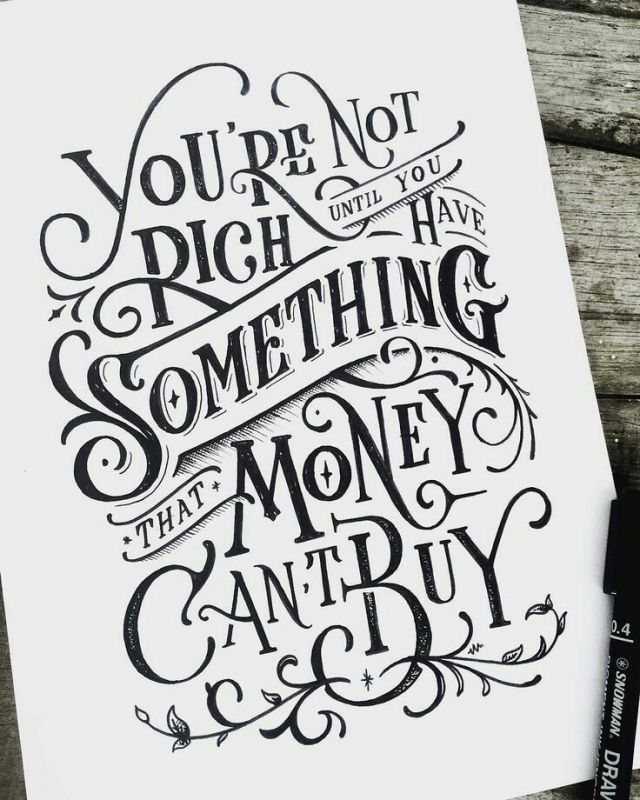 YOU'RE NOT
RICH UNTIL YOU
HAVE
SOMETHING
THAT MONEY
CAN'T BUY
0.4
SNOWMAN
DRAW